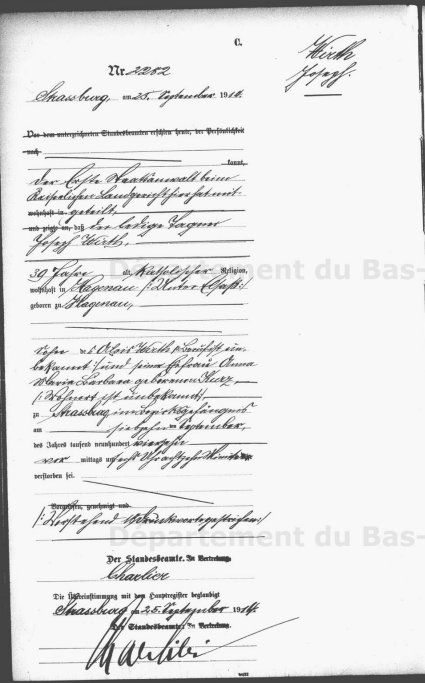 C.
Wirth
Joseph.
Nr. 2282
Strassburg, am 25. September 1914.
Vor dem unterzeichneten Standesbeamten erschien heute, der Persönlichkeit
nach
kannt,
Der Erste Staatsanwalt beim
Kaiserlichen Landgericht hier hat mit-
wohnhaft in geteilt,
und zeigte an, daß der ledige Tagner
Joseph Wirth,
39 Jahre alt, katholischer Religion,
wohnhaft in Hagenau /: Unter Elsaß :/
geboren zu Hagenau,
Sohn des Alois Wirth, Beruf ist un-
bekannt / und seiner Ehefrau Anna
Maria Barbara geborenen Kurz
/: Wohnort ist unbekannt,
zu Strassburg im Bezirksgefängnis
am siebzehnten September,
des Jahres tausend neunhundert vierzehn
vor mittags um sechs Uhr achtzehn Minuten
verstorben sei.
Vorgelesen, genehmigt und
/: Vorstehend Druckworte gestrichen :/
Der Standesbeamte. In Vertretung.
Charlier
Die Übereinstimmung mit dem Hauptregister beglaubigt
Strassburg am 25. September 1914.
Der Standesbeamte: In Vertretung.
Département du Bas-
Département du Bas-